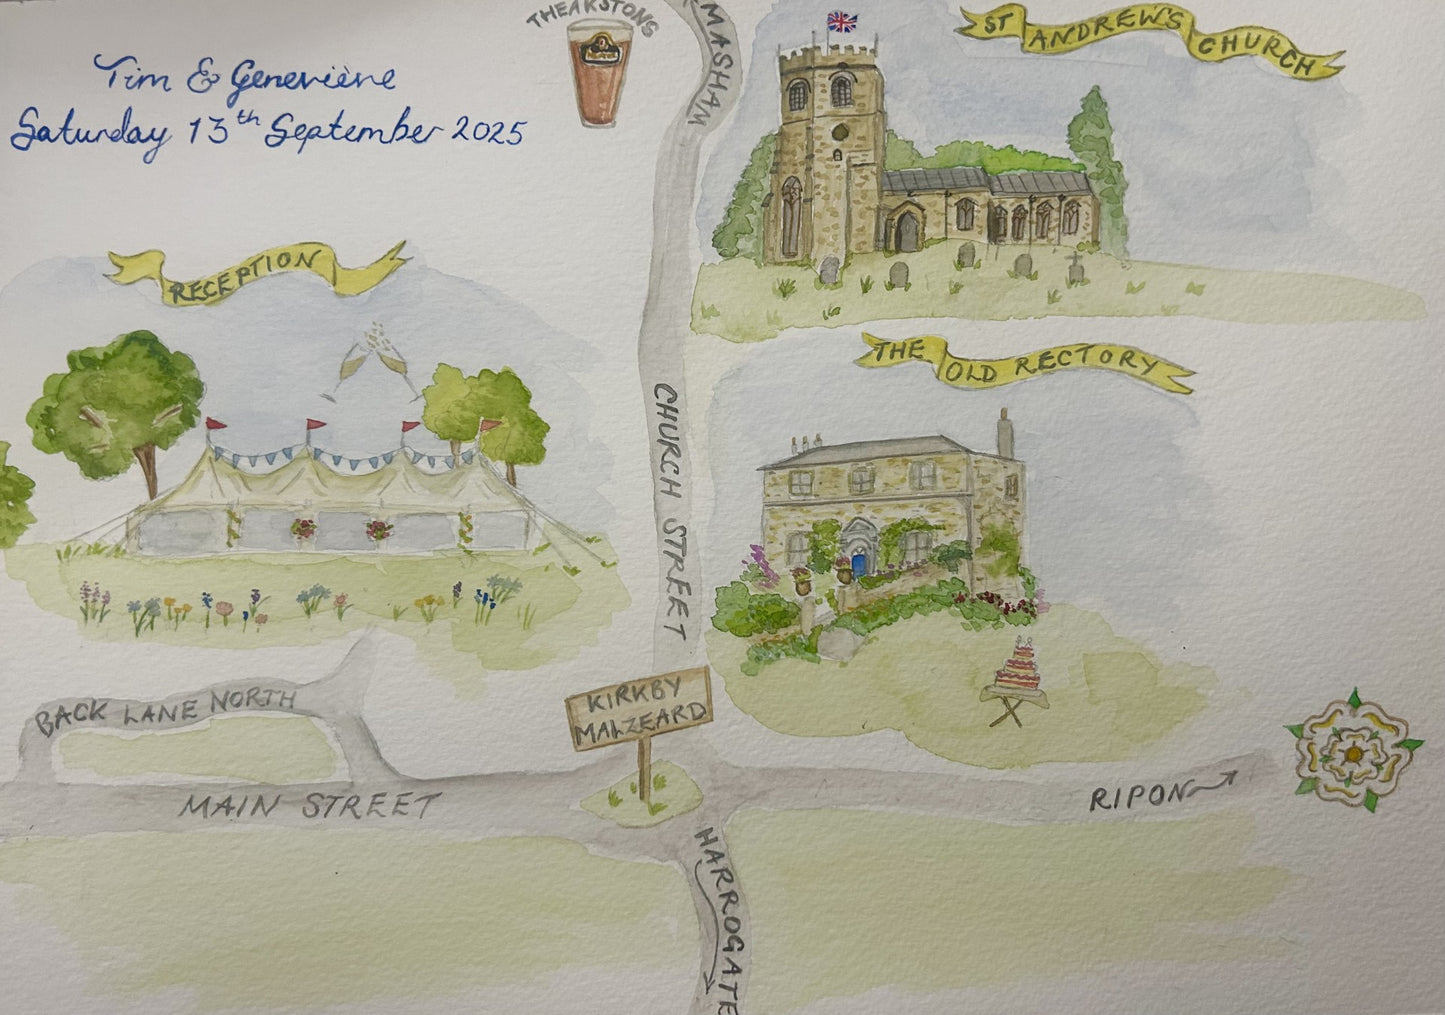 Tim & Geneviève
Saturday 13th September 2025
THEAKSTONS
MASHAM
ST ANDREW'S CHURCH
RECEPTION
THE OLD RECTORY
CHURCH STREET
KIRKBY
MALZEARD
BACK LANE NORTH
MAIN STREET
RIPON
HARROGATE